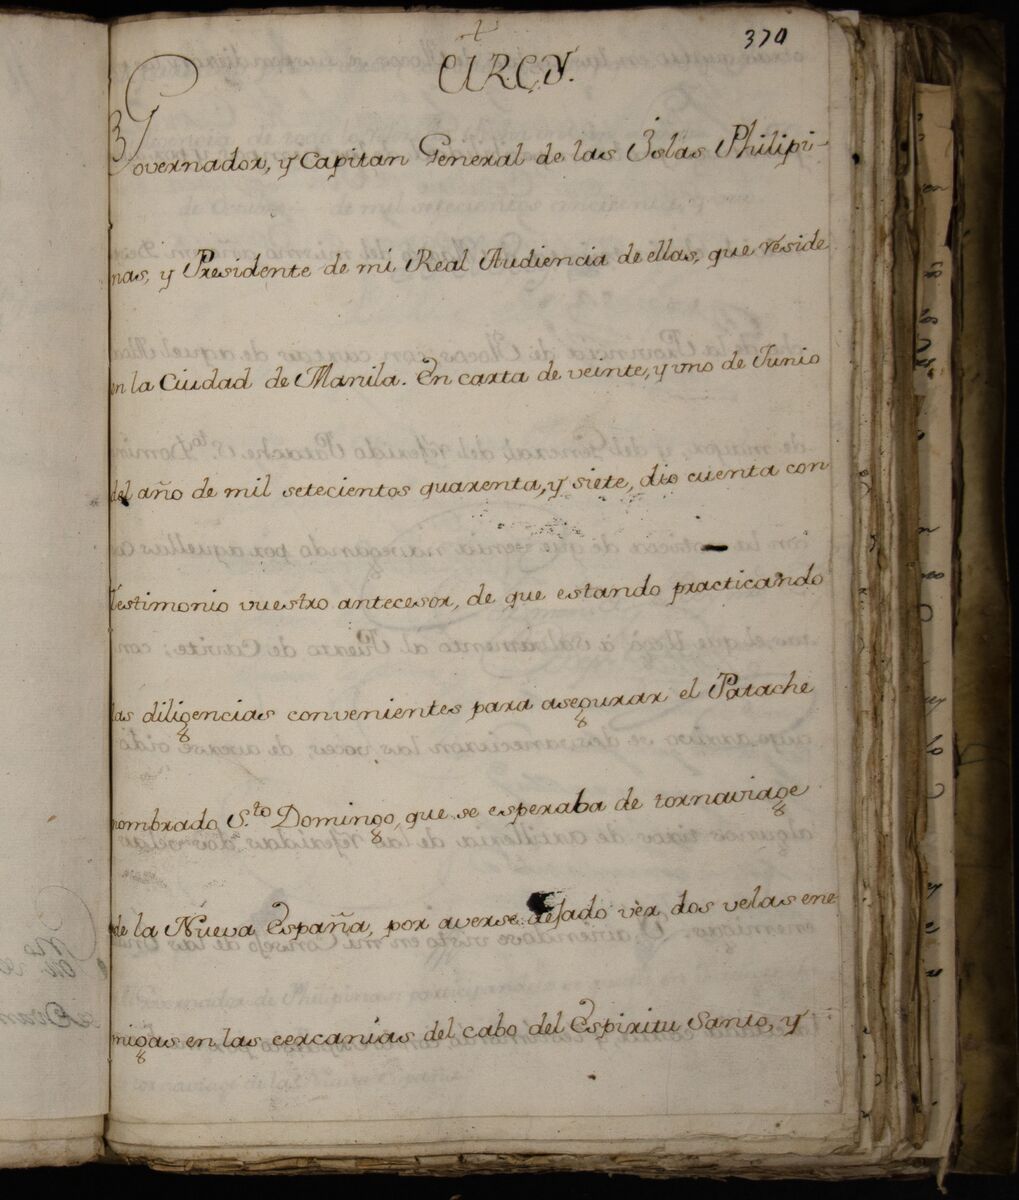 370
Governador, y Capitan General de las Islas Philipi-
nas, y Presidente de mi Real Audiencia de ellas, que reside
en la Ciudad de Manila. En carta de veinte, y uno de Junio
del año de mil setecientos quarenta, y siete, dio cuenta con
testimonio vuestro antecesor, de que estando practicando
las diligencias convenientes para asegurar el Patache
nombrado S.to Domingo, que se esperaba de tornaviage
de la Nueva España, por averse dejado vèr dos velas ene
migas en las cercanias del cabo del Espiritu Santo, y